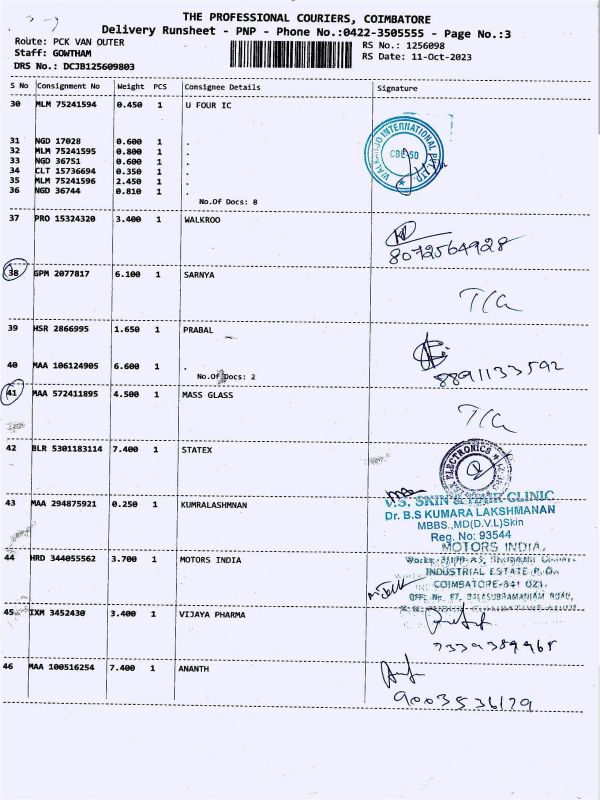 THE PROFESSIONAL COURIERS, COIMBATORE
Delivery Runsheet - PNP - Phone No.:0422-3505555 - Page No.:3
Route: PCK VAN OUTER
RS No.: 1256098
Staff: GOWTHAM
RS Date: 11-Oct-2023
DRS No.: DCJB125609803
S No Consignment No Weight PCS Consignee Details Signature
30 MLM 75241594 0.450 1 U FOUR IC
31 NGD 17028 0.600 1 .
32 MLM 75241595 0.800 1 .
33 NGD 36751 0.600 1 .
34 CLT 15736694 0.350 1 .
35 MLM 75241596 2.450 1 .
36 NGD 36744 0.810 1 .
No.Of Docs: 8
INTERNATIONAL PVT. LTD.
CBE-50
37 PRO 15324320 3.400 1 WALKROO
8072564928
38 GPM 2077817 6.100 1 SARNYA
39 HSR 2866995 1.650 1 PRABAL
40 MAA 106124905 6.600 1 .
No.Of Docs: 2
8891133592
41 MAA 572411895 4.500 1 MASS GLASS
42 BLR 5301183114 7.400 1 STATEX
ELECTRONICS
43 MAA 294875921 0.250 1 KUMRALASHMNAN
V.S. SKIN & HAIR CLINIC
Dr. B.S KUMARA LAKSHMANAN
MBBS.,MD(D.V.L)Skin
Reg. No: 93544
44 HRD 344055562 3.700 1 MOTORS INDIA
MOTORS INDIA,
INDUSTRIAL ESTATE P.O.
COIMBATORE-641 021.
45 IXM 3452430 3.400 1 VIJAYA PHARMA
7339389968
46 MAA 100516254 7.400 1 ANANTH
9003536179